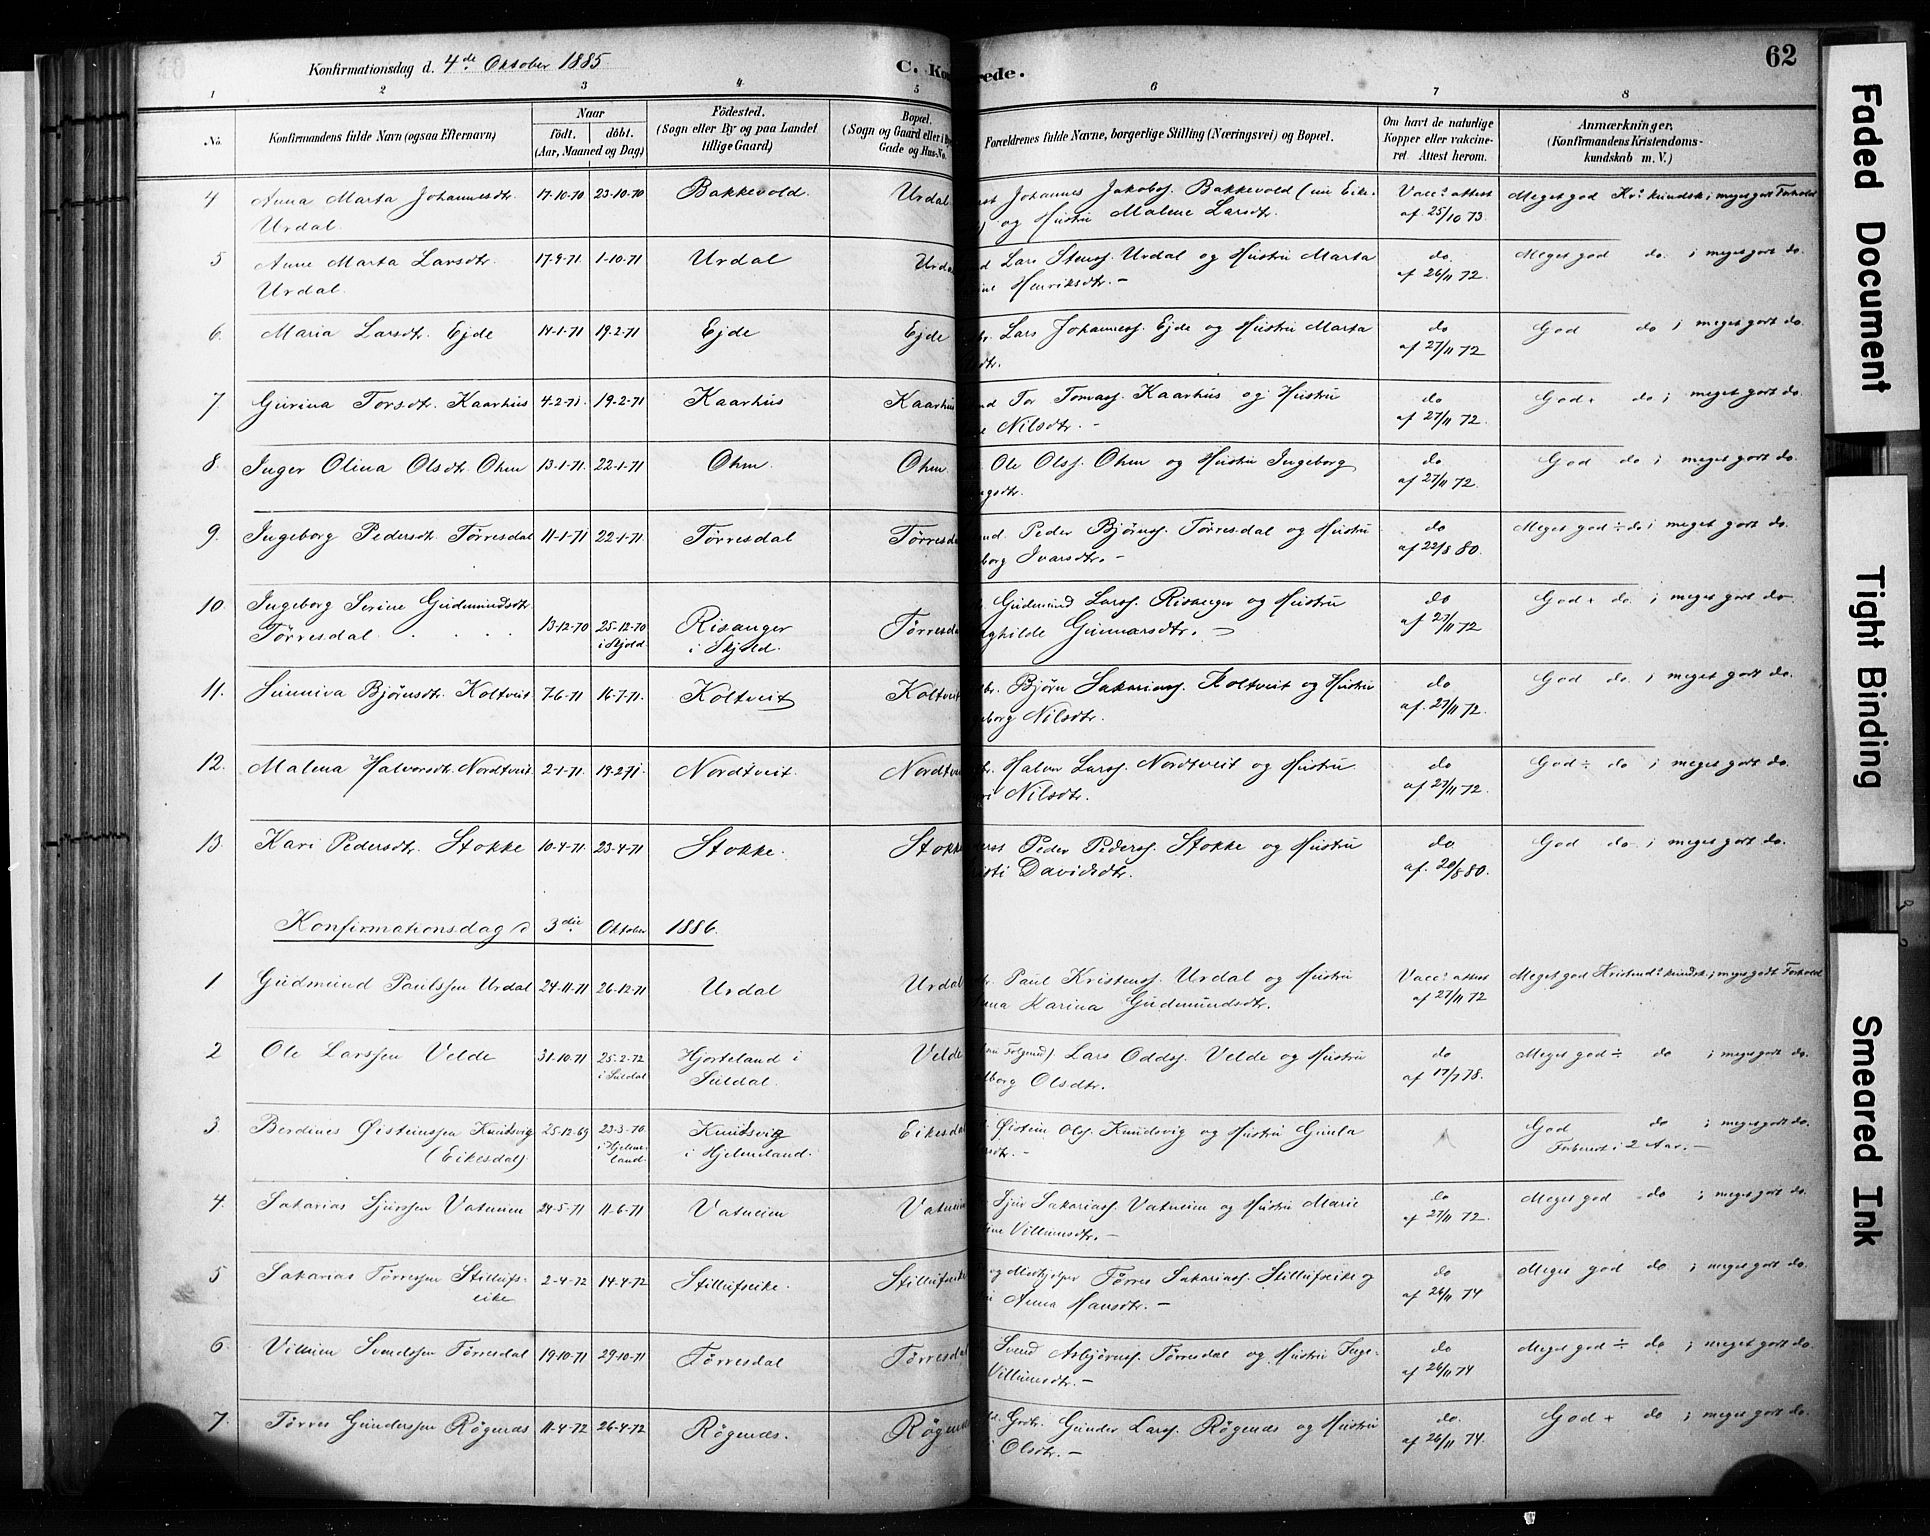 Konfirmationsdag d. 4de Oktober 1885
C. Kon rede.
62
1 2 3 4 5 6 7 8
No. Konfirmandens fulde Navn (ogsaa Efternavn) Naar født. døbt. (Aar, Maaned og Dag) Fødested. (Sogn eller By og paa Landet tillige Gaard) Bopæl. (Sogn og Gaard eller i By Gade og Hus-No. Forældrenes fulde Navne, borgerlige Stilling (Næringsvei) og Bopæl. Om havt de naturlige Kopper eller vakcineret. Attest herom. Anmærkninger. (Konfirmandens Kristendomskundskab m. V.)
4 Anna Marta Johannesdtr. 17-10-70 23-10-70 Bakkevold. Urdal Johannes Jakobs. Bakkevold (nu Eike- Vacc. attest Meget god Kr. kundsk; meget godt Forhold
Urdal. og Hustru Malene Larsdtr. af 25/10 73.
5 Anne Marta Larsdtr. 17-9-71 1-10-71 Urdal Urda Lars Stens. Urdal og Hustru Marta do. Meget god do. i meget godt do.
Urdal. Henriksdtr. – af 26/11 72.
6. Maria Larsdtr. Ejde 14-1-71 19-2-71 Ejde Ejde Lars Johanness. Ejde og Hustru Marta do God do i meget godt do.
af 27/11 72
7 Gurina Torsdtr. Kaarhus 4-2-71. 19-2-71 Kaarhus Kaarhus Tor Tomass. Kaarhus og Hustru do God + do i meget godt do.
Nilsdtr. – af 27/11 72.
8. Inger Olina Olsdtr. Ohm 13-1-71 22-1-71 Ohm. Ohm. Ole Ols. Ohm og Hustru Ingeborg do God do i meget godt do.
gsdtr. af 27/11 72.
9. Ingeborg Pedersdtr. Tørresdal 11-1-71 22-1-71 Tørresdal Tørresda Peder Bjørns. Tørresdal og Hustru do Meget god ÷ do i meget godt do.
borg Ivarsdtr. – af 22/8 80.
10. Ingeborg Serine Gudmundsdtr. Gudmund Larss. Risanger og Hustru do God + do i meget godt do
Tørresdal. 13-12-70 25-12-70 i Skjold. Risanger i Skjold. Tørresda Gunnarsdtr. – af 27/11 72
11. Sunniva Bjørnsdtr. Koltveit 7-6-71 16-7-71. Koltveit Koltveit Bjørn Sakarias. Koltveit og Hustru do God do i meget godt do.
borg Nilsdtr. af. 27/11 72.
12. Malena Halvorsdtr. Nordtveit 2-1-71. 19-2-71. Nordtveit. Nordtvei Halvor Larss. Nordtveit og Hustru do God ÷ do i meget godt do.
Nilsdtr. af 27/11 72.
13. Kari Pedersdtr. Stokke 10-4-71 23-4-71 Stokke. Stokk Peder Peders. Stokke og Hustru do. God do. i meget godt do.
Davidsdtr. af. 20/8 80.
Konfirmationsdag d 3die Oktober 1886.
1 Gudmund Paulssen Urdal 24-11-71 26-12-71 Urdal Urdal Paul Kristens. Urdal og Hustru Vacc. attest Meget god Kristend. kundsk. i meget godt Forhold
Karina Gudmundsdtr. af 27/11 72
2 Ole Larssen Velde 31-10-71 25-2-72 i Suldal Hjorteland i Suldal. Velde Lars Odds. Velde og Hustru do Meget god ÷ do i meget godt do.
borg Olsdtr. af 17/7 78.
3. Berdines Østeinssen Knudsvig 25-12-69 23-3-70 i Hjelmeland. Knudsvig i Hjelmeland. Eikesdal Østein Ols. Knudsvig og Hustru Gunla God do i meget godt do.
(Eikesdal). Forberedt i 2 Aar. –
4. Sakarias Sjurssen Vatneim 24-5-71 11-6-71 Vatneim Vatneim Sjur Sakarias. Vatneim og Hustru Marie do Meget god do i meget godt do.
Villumsdtr. – af 27/11 72.
5 Sakarias Tørressen Stillufs- 2-4-72 14-4-72 Stillufseike. Stillufseike og Medhjelper Tørres Sakarias. Stillufseike og do Meget god do i meget godt do.
eike Anna Hansdtr. – af 26/11 74
6. Villum Svendssen Tørresdal 19-10-71 29-10-71 Tørresdal Tørresdal Svend Asbjørns. Tørresdal og Hustru Inge- do Meget god ÷ do i meget godt do.
Villumsdtr. – af 26/11 74
7. Tørres Gunderssen Røgenæs 11-4-72 26-4-72 Røgenæs. Røgenæ Gunder Larss. Røgenæs og Hustru do. God + do i meget godt do.
Olsdtr. – af 26/11 74.
Faded Document
Tight Binding
Smeared Ink